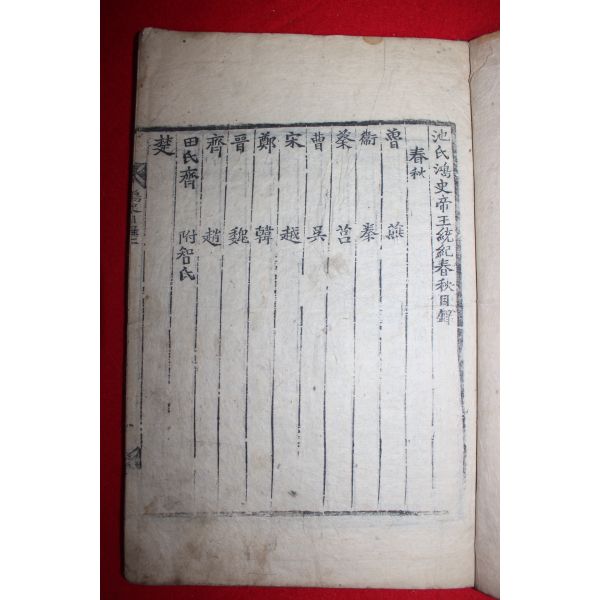 池氏鴻史帝王統紀春秋目錄
春秋
魯 燕
衛 秦
蔡 莒
曹 吳
宋 越
鄭 韓
晉 魏
齊 趙
田氏齊 附智氏
楚